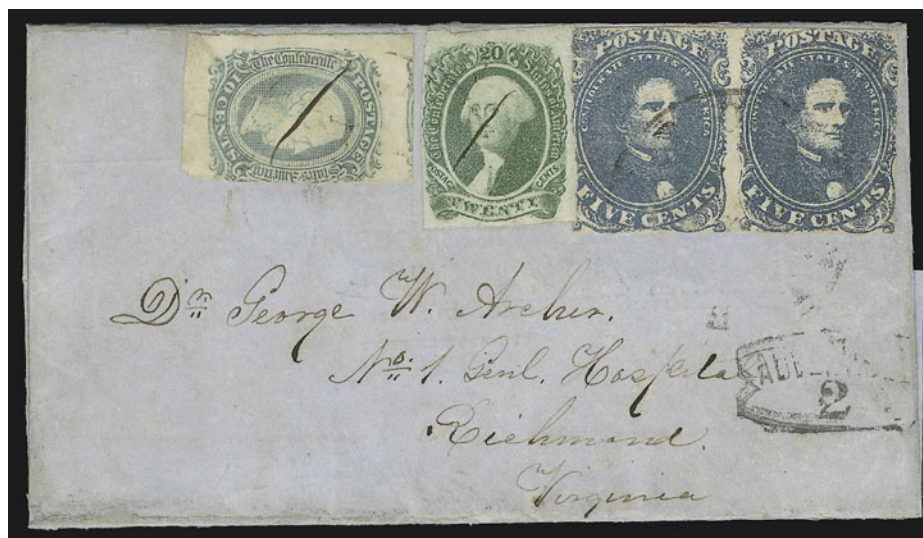 10 CENTS
The Confederate
POSTAGE
States of America
20
The Confederate
States of America
POSTAGE
CENTS
TWENTY
POSTAGE
CONFEDERATE STATES OF AMERICA
FIVE CENTS
POSTAGE
CONFEDERATE STATES OF AMERICA
FIVE CENTS
Dr. George W. Archer.
No. 1. Genl. Hospital
Richmond.
Virginia
2